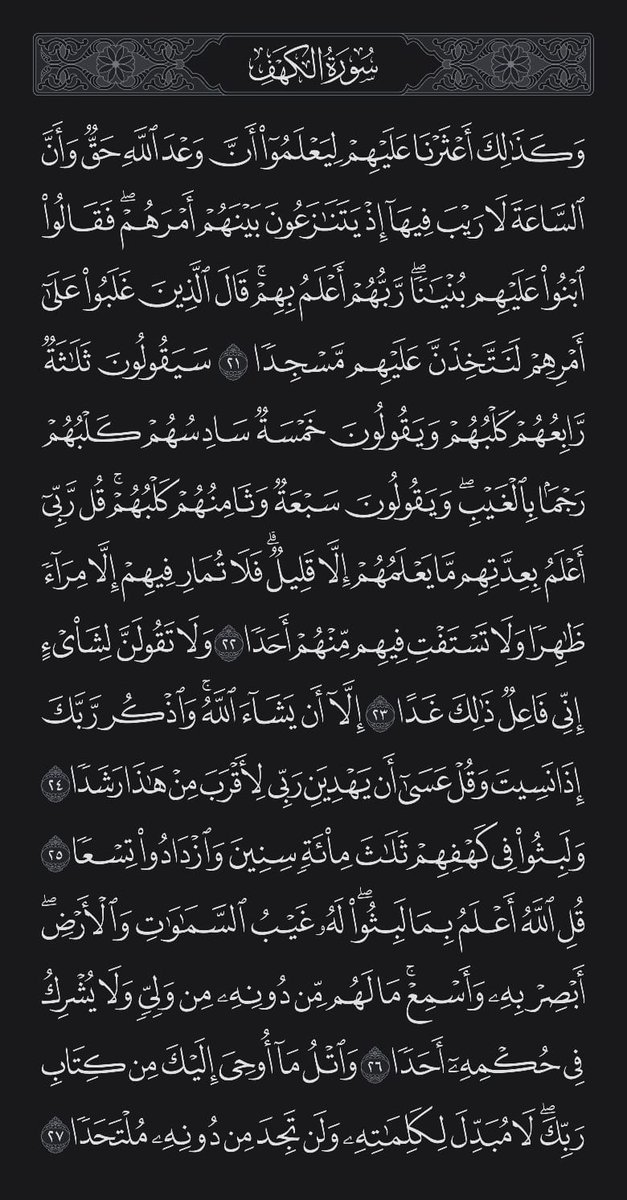 سُورَةُ الكَهْفِ
وَكَذَٰلِكَ أَعْثَرْنَا عَلَيْهِمْ لِيَعْلَمُوٓا۟ أَنَّ وَعْدَ ٱللَّهِ حَقٌّ وَأَنَّ
ٱلسَّاعَةَ لَا رَيْبَ فِيهَآ إِذْ يَتَنَٰزَعُونَ بَيْنَهُمْ أَمْرَهُمْ ۖ فَقَالُوا۟
ٱبْنُوا۟ عَلَيْهِم بُنْيَٰنًا ۖ رَّبُّهُمْ أَعْلَمُ بِهِمْ ۚ قَالَ ٱلَّذِينَ غَلَبُوا۟ عَلَىٰٓ
أَمْرِهِمْ لَنَتَّخِذَنَّ عَلَيْهِم مَّسْجِدًا ٢١ سَيَقُولُونَ ثَلَٰثَةٌ
رَّابِعُهُمْ كَلْبُهُمْ وَيَقُولُونَ خَمْسَةٌ سَادِسُهُمْ كَلْبُهُمْ
رَجْمًۢا بِٱلْغَيْبِ ۖ وَيَقُولُونَ سَبْعَةٌ وَثَامِنُهُمْ كَلْبُهُمْ ۚ قُل رَّبِّىٓ
أَعْلَمُ بِعِدَّتِهِم مَّا يَعْلَمُهُمْ إِلَّا قَلِيلٌ ۗ فَلَا تُمَارِ فِيهِمْ إِلَّا مِرَآءً
ظَٰهِرًا وَلَا تَسْتَفْتِ فِيهِم مِّنْهُمْ أَحَدًا ٢٢ وَلَا تَقُولَنَّ لِشَا۟ىْءٍ
إِنِّى فَاعِلٌ ذَٰلِكَ غَدًا ٢٣ إِلَّآ أَن يَشَآءَ ٱللَّهُ ۚ وَٱذْكُر رَّبَّكَ
إِذَا نَسِيتَ وَقُلْ عَسَىٰٓ أَن يَهْدِيَنِ رَبِّى لِأَقْرَبَ مِنْ هَٰذَا رَشَدًا ٢٤
وَلَبِثُوا۟ فِى كَهْفِهِمْ ثَلَٰثَ مِا۟ئَةٍ سِنِينَ وَٱزْدَادُوا۟ تِسْعًا ٢٥
قُلِ ٱللَّهُ أَعْلَمُ بِمَا لَبِثُوا۟ ۖ لَهُۥ غَيْبُ ٱلسَّمَٰوَٰتِ وَٱلْأَرْضِ ۖ
أَبْصِرْ بِهِۦ وَأَسْمِعْ ۚ مَا لَهُم مِّن دُونِهِۦ مِن وَلِىٍّ وَلَا يُشْرِكُ
فِى حُكْمِهِۦٓ أَحَدًا ٢٦ وَٱتْلُ مَآ أُوحِىَ إِلَيْكَ مِن كِتَابِ
رَبِّكَ ۖ لَا مُبَدِّلَ لِكَلِمَٰتِهِۦ وَلَن تَجِدَ مِن دُونِهِۦ مُلْتَحَدًا ٢٧